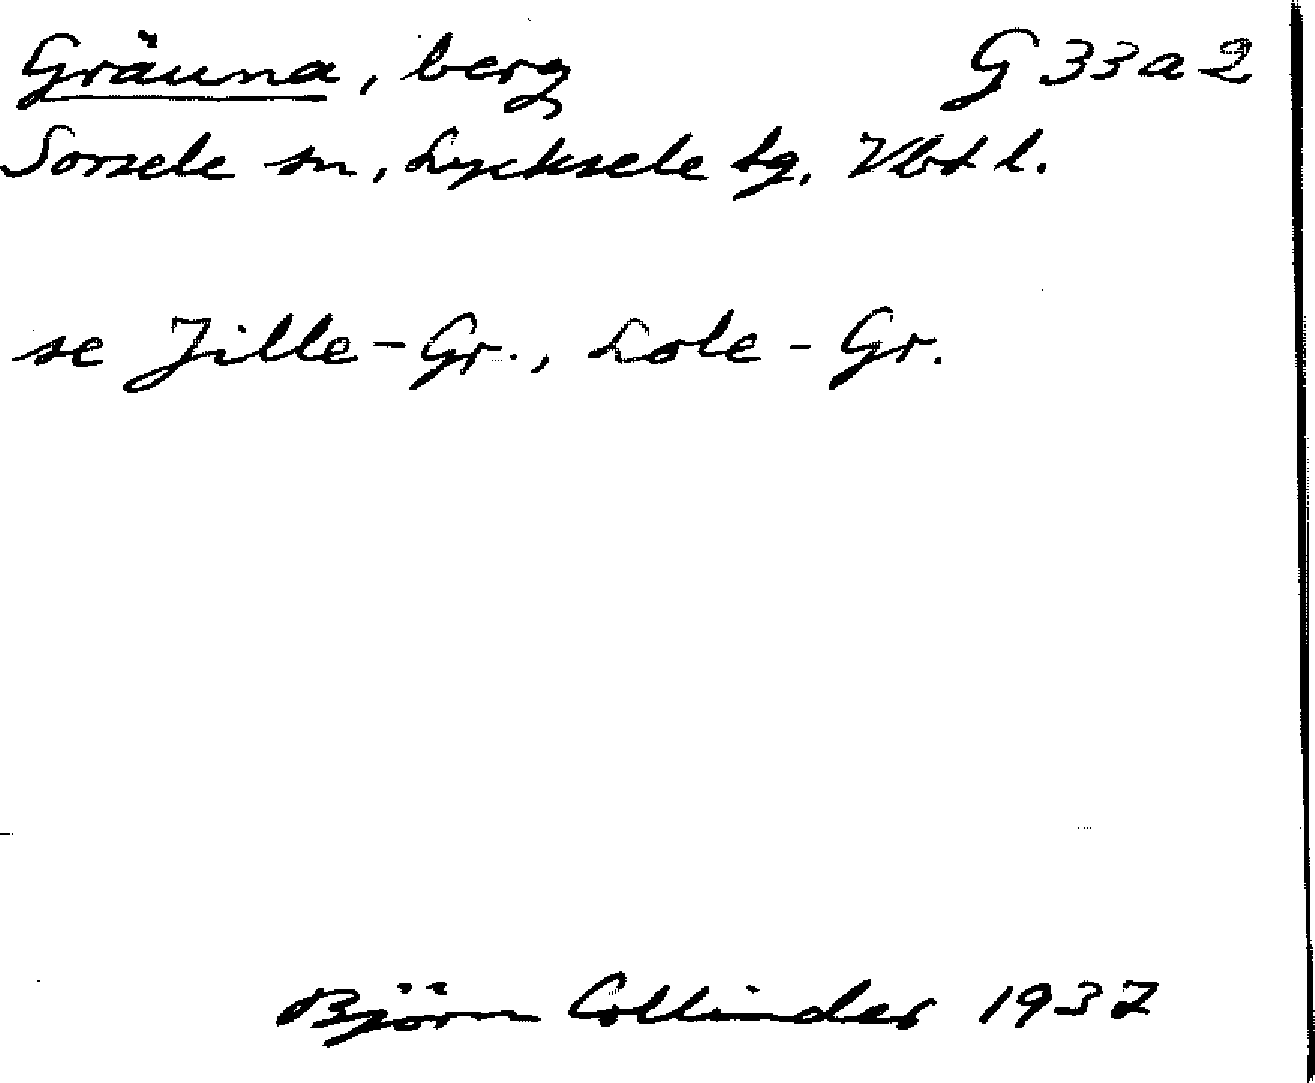 Gräuna, berg G 33 a 2
Sorsele sn, Lycksele tg, Vbtl.
se Jille-Gr., Lole-Gr.
Björn Collinder 1937